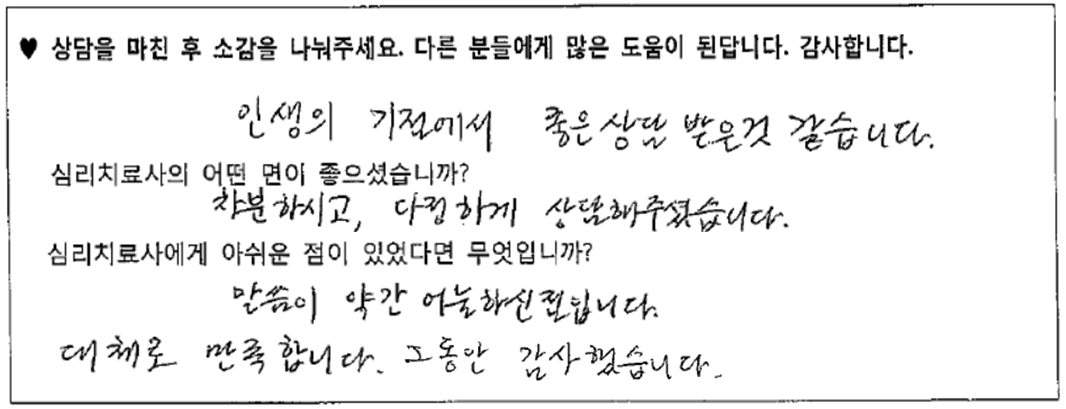 ♥ 상담을 마친 후 소감을 나눠주세요. 다른 분들에게 많은 도움이 된답니다. 감사합니다.
인생의 기점에서 좋은상담 받은것 같습니다.
심리치료사의 어떤 면이 좋으셨습니까?
차분하시고, 다정하게 상담해주셨습니다.
심리치료사에게 아쉬운 점이 있었다면 무엇입니까?
말씀이 약간 어눌하신편입니다.
대체로 만족합니다. 그동안 감사했습니다.